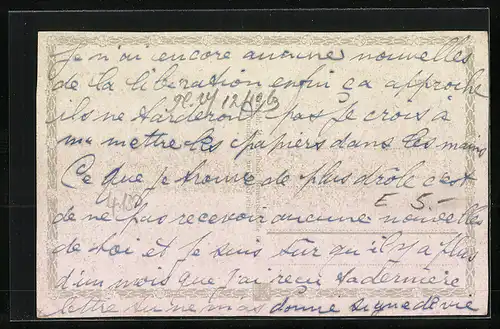 Je n'ai encore aucune nouvelles
de la libération enfin ça approche
ils ne tarderont pas je crois à
me mettre les papiers dans les mains
Ce que je trouve de plus drôle c'est
E 5.-
de ne pas recevoir aucune nouvelles
de toi et je suis sûr qu'il y a plus
d'un mois que j'ai reçu ta dernière
lettre tu ne m'as donné signe de vie